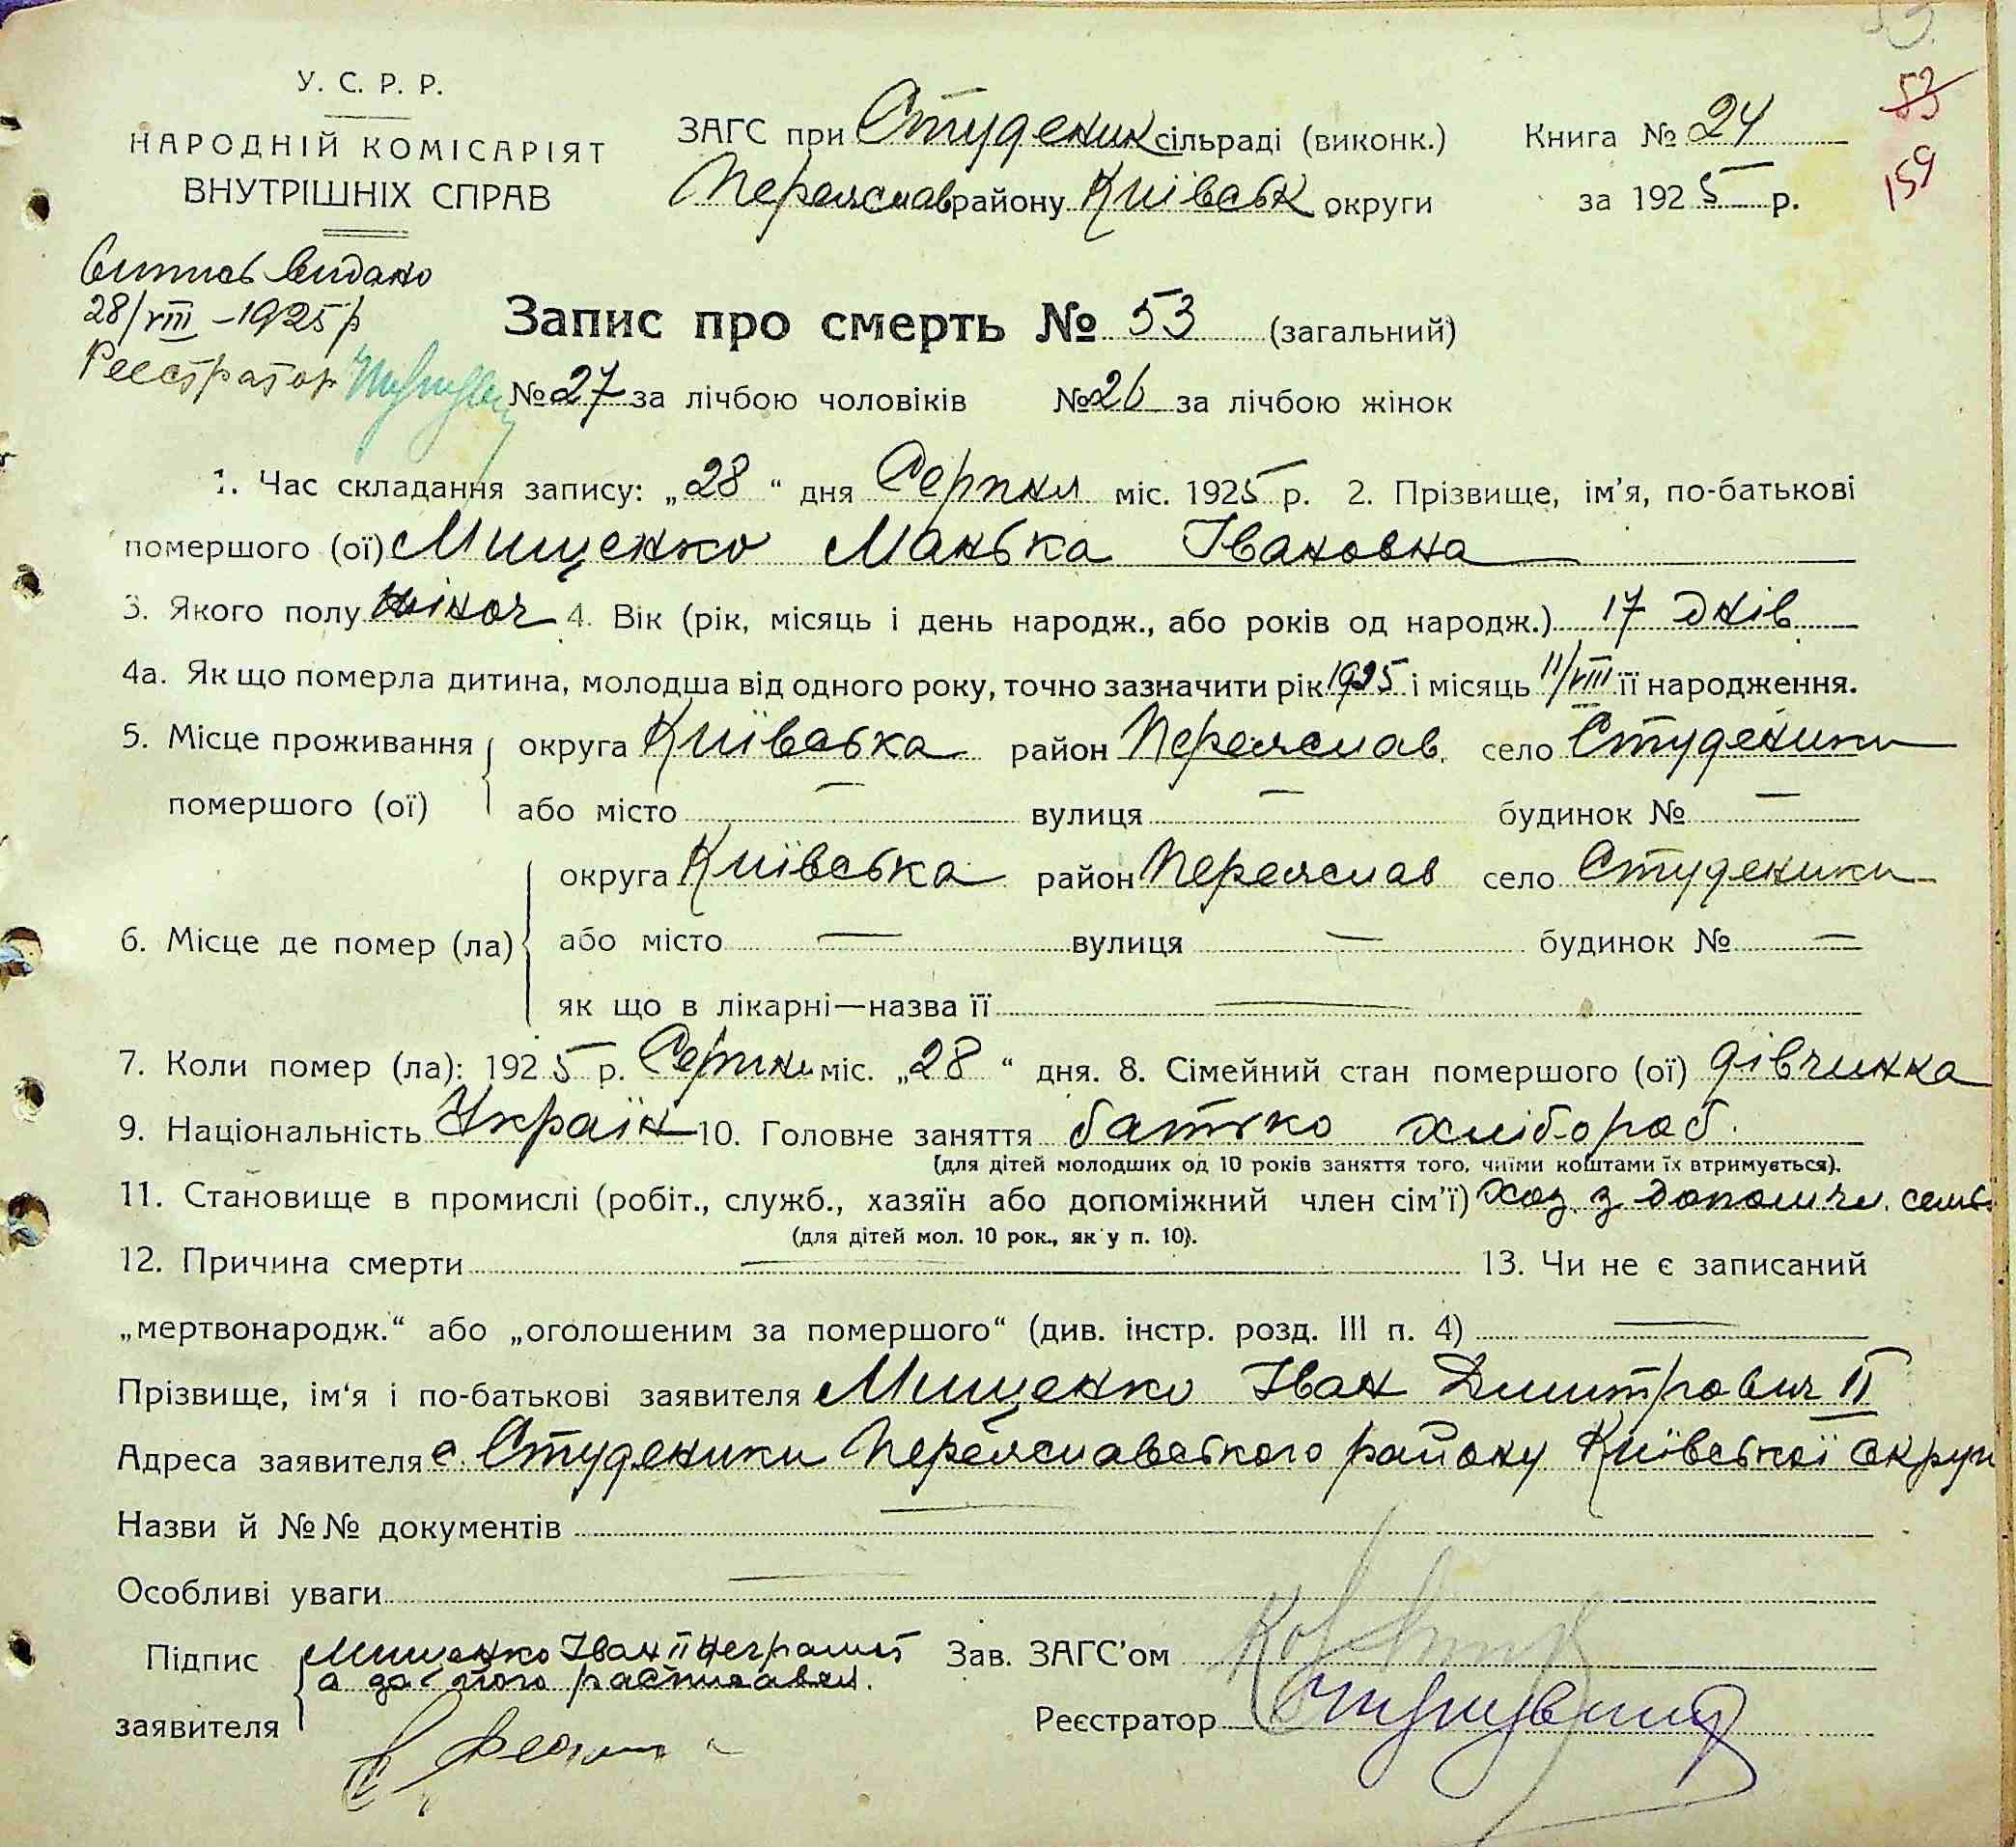 У. С. Р. Р.
НАРОДНІЙ КОМІСАРІЯТ
ВНУТРІШНІХ СПРАВ
ЗАГС при Студеник сільраді (виконк.)
Переяслав району Київськ округи
Книга № 24
за 1925 р.
53
159
Випись видано
28/VIII – 1925 р
Реєстратор
Запис про смерть № 53 (загальний)
№ 27 за лічбою чоловіків № 26 за лічбою жінок
1. Час складання запису: „28“ дня Серпня міс. 1925 р. 2. Прізвище, ім'я, по-батькові
помершого (ої) Мищенко Манька Івановна
3. Якого полу жіноч 4. Вік (рік, місяць і день народж., або років од народж.) 17 днів
4а. Як що померла дитина, молодша від одного року, точно зазначити рік 1925 і місяць 11/VIII її народження.
5. Місце проживання помершого (ої) округа Київська район Переяслав. село Студеники
або місто — вулиця — будинок № —
6. Місце де помер (ла) округа Київська район Переяслав село Студеники
або місто — вулиця — будинок № —
як що в лікарні—назва її —
7. Коли помер (ла): 1925 р. Серпня міс. „28“ дня. 8. Сімейний стан помершого (ої) дівчинка
9. Національність Україн 10. Головне заняття батько хлібораб.
(для дітей молодших од 10 років заняття того, чиїми коштами їх втримується).
11. Становище в промислі (робіт., служб., хазяїн або допоміжний член сім'ї) хоз. з допомгч. семь.
(для дітей мол. 10 рок., як у п. 10).
12. Причина смерти — 13. Чи не є записаний
„мертвонародж.“ або „оголошеним за помершого“ (див. інстр. розд. III п. 4) —
Прізвище, ім'я і по-батькові заявителя Мищенко Іван Дмитрович II
Адреса заявителя с. Студеники Переяславського району Київської округи
Назви й №№ документів —
Особливі уваги —
Підпис заявителя Мищенко Іван II неграмот
а за його расписався.
Зав. ЗАГС'ом
Реєстратор